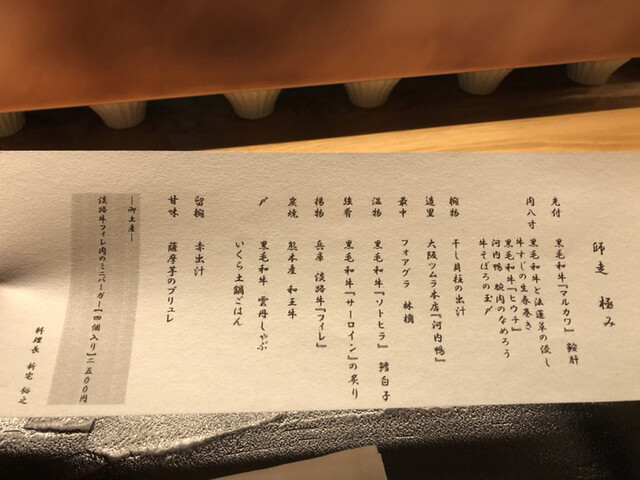 師走 極み
先付 黒毛和牛『マルカワ』 鮟肝
肉八寸 黒毛和牛と法蓮草の浸し
牛すじの生春巻き
黒毛和牛『ヒウチ』
河内鴨 腿肉のなめろう
牛そぼろの玉〆
椀物 干し貝柱の出汁
造里 大阪ツムラ本店『河内鴨』
最中 フォアグラ 林檎
温物 黒毛和牛『ソトヒラ』 鱈白子
強肴 黒毛和牛『サーロイン』の炙り
揚物 兵庫 淡路牛『フィレ』
炭焼 熊本産 和王牛
〆 黒毛和牛 雲丹しゃぶ
いくら土鍋ごはん
留椀 赤出汁
甘味 薩摩芋のブリュレ
―御土産―
淡路牛フィレ肉のミニバーガー【四個入り】二五〇〇円
料理長 新宅 裕之